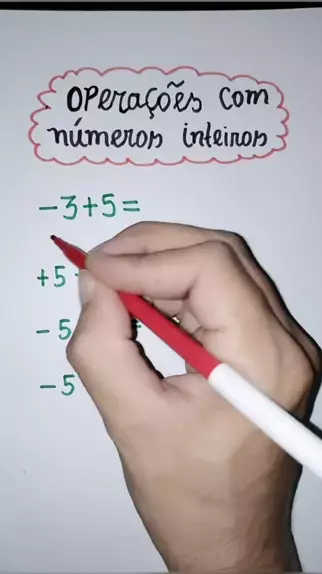 OPERAÇÕES com
números inteiros
-3+5=
+5
-5
-5